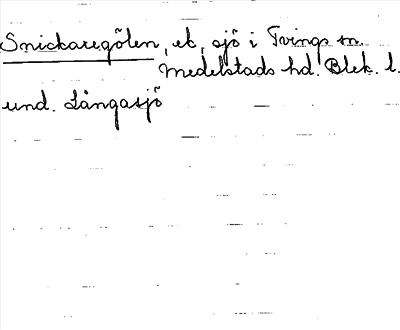 Snickaregölen, et, sjö i Tvings sn.
Medelstads hd. Blek. l.
und. Långasjö